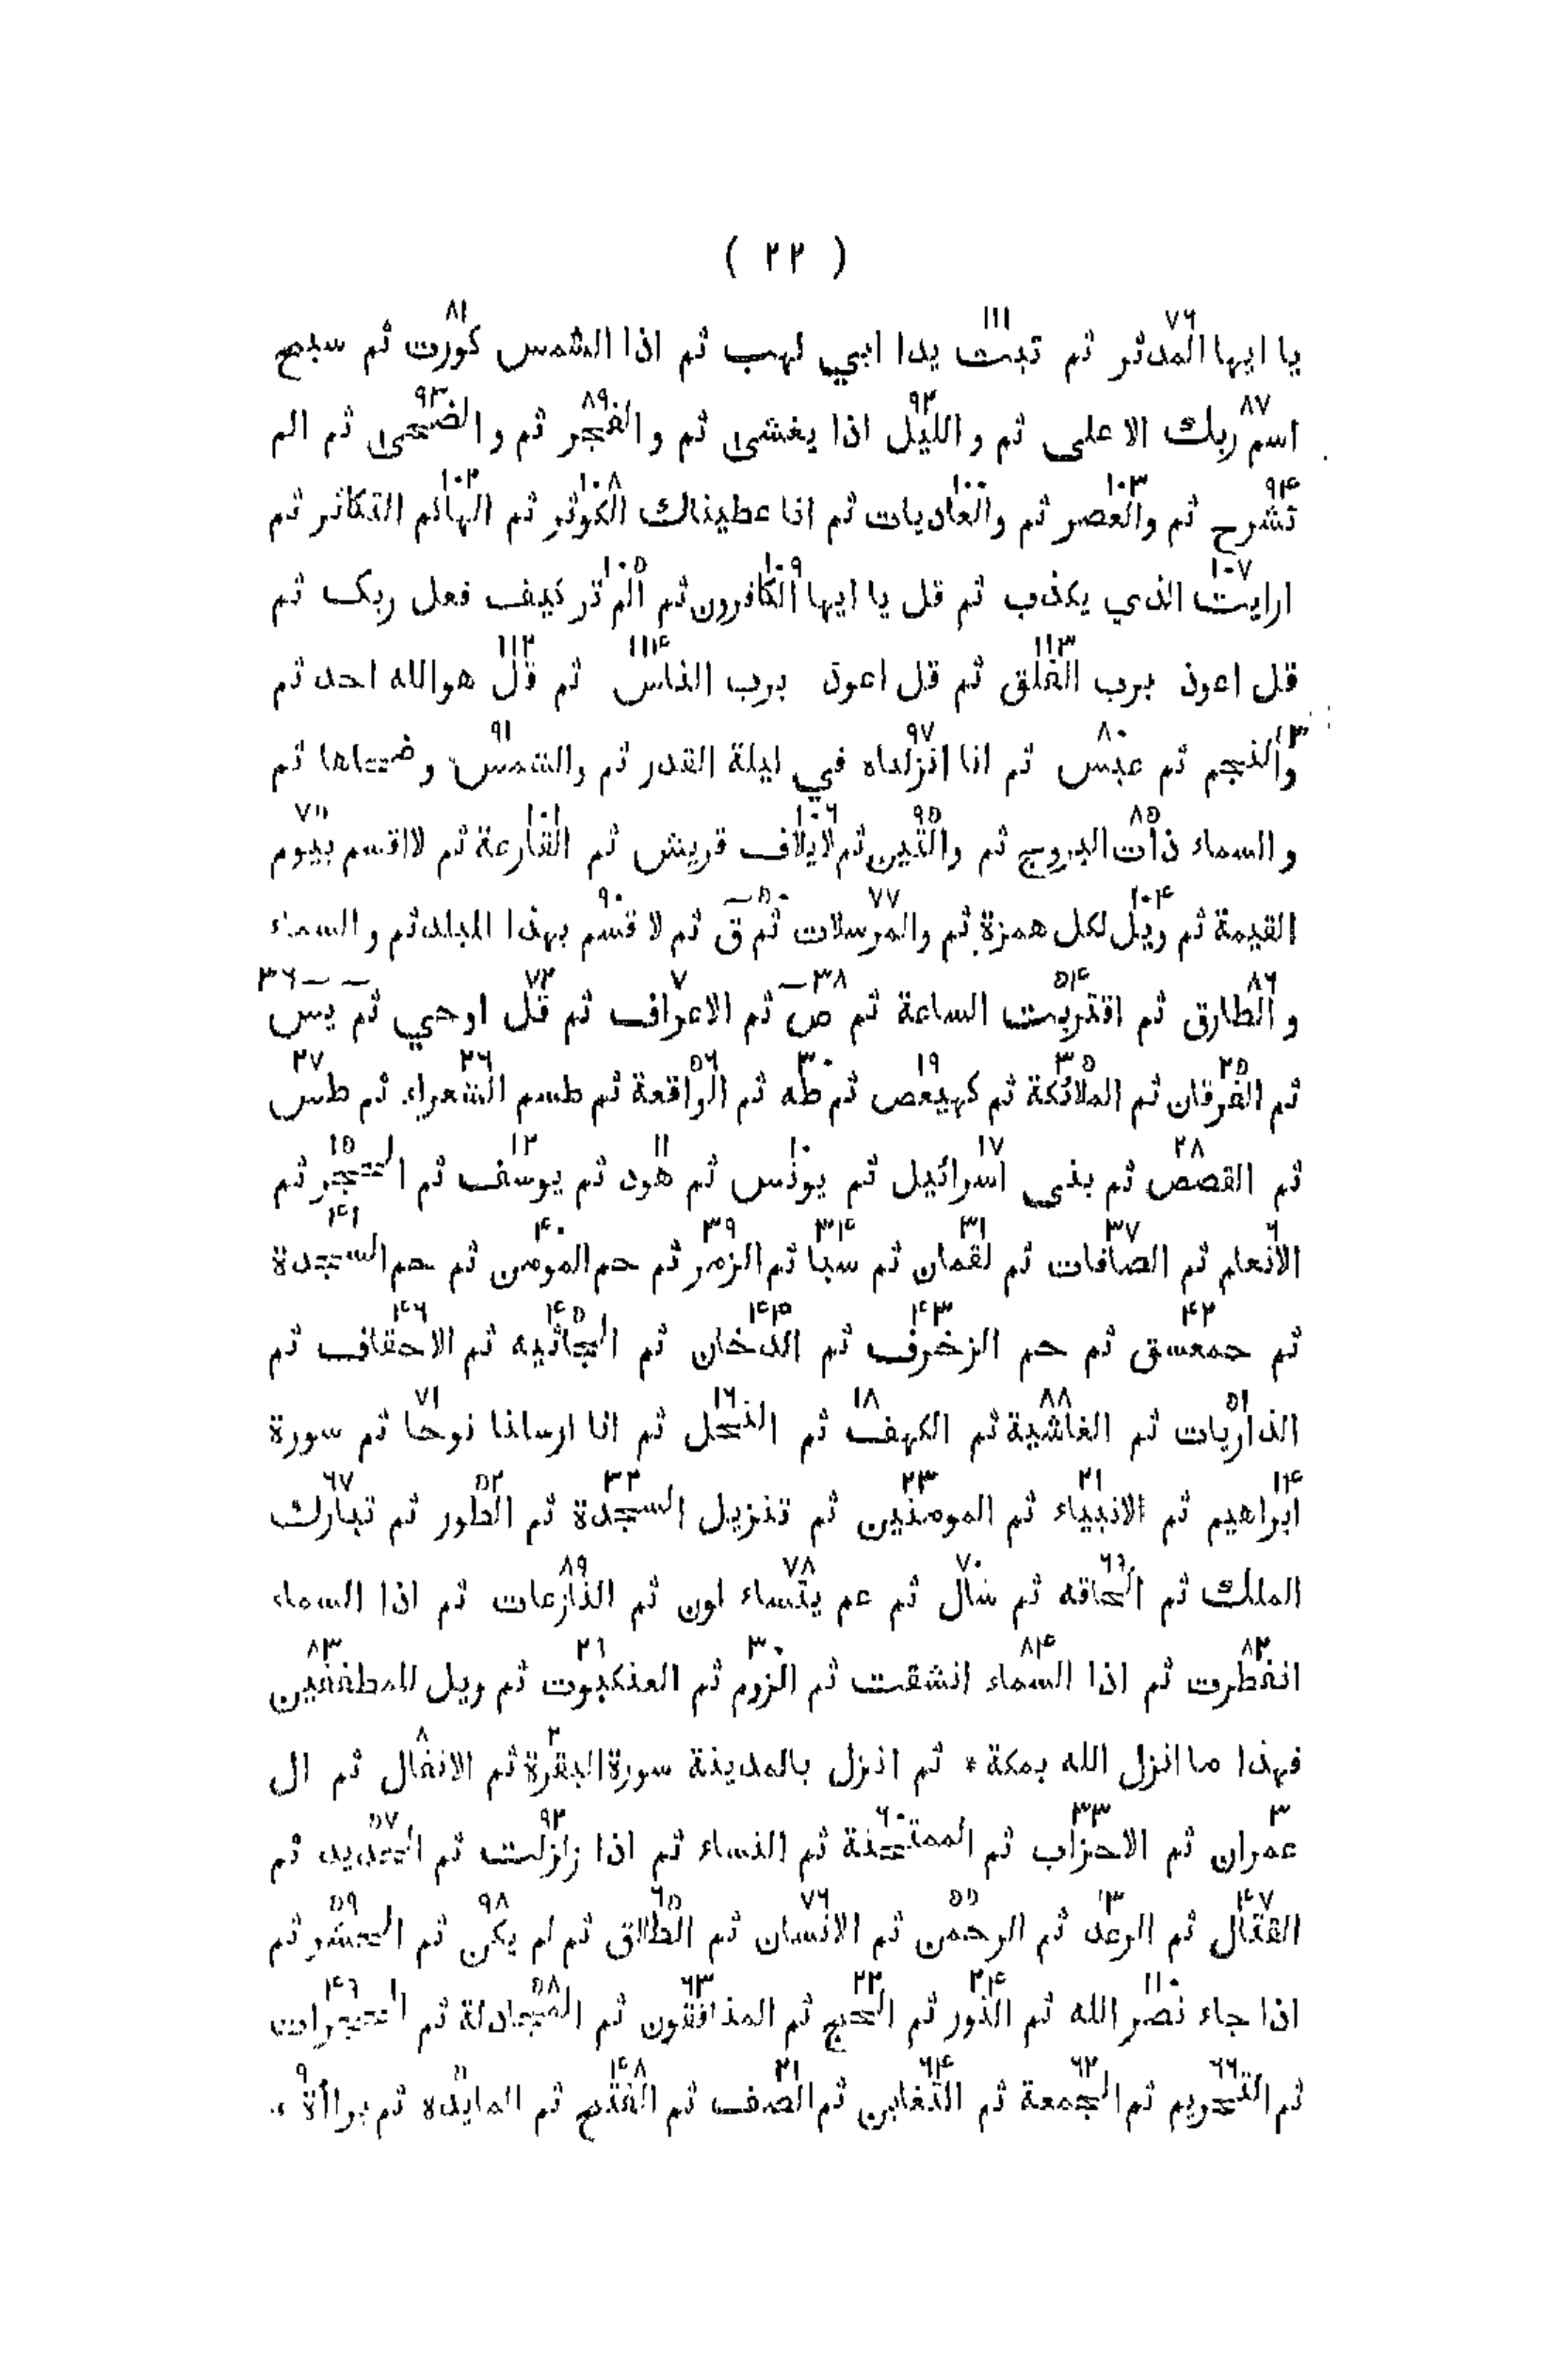 ( ٢٢ )
٧٦ ١١١ ٨١
يا ايها المدثر ثم تبت يدا ابي لهب ثم اذا الشمس كورت ثم سبح
٨٧ ٩٢ ٨٩ ٩٣
اسم ربك الاعلى ثم و الليل اذا يغشى ثم و الفجر ثم و الضحى ثم الم
٩۴ ١٠٣ ١٠٠ ١٠٨ ١٠٢
تشرح ثم والعصر ثم والعاديات ثم انا عطيناك الكوثر ثم الهاكم التكاثر ثم
١٠٧ ١٠٩ ١٠٥
ارايت الذي يكذب ثم قل يا ايها الكافرون ثم الم تر كيف فعل ربك ثم
١١٣ ١١۴ ١١٢
قل اعوذ برب الفلق ثم قل اعوذ برب الناس ثم قل هوالله احد ثم
٨٠ ٩٧ ٩١
والنجم ثم عبس ثم انا انزلناه في ليلة القدر ثم والشمس وضحاها ثم
٨٥ ٩٥ ١٠٦ ١٠١ ٧٥
و السماء ذات البروج ثم والتين ثم لايلاف قريش ثم القارعة ثم لااقسم بيوم
١٠۴ ٧٧ ٥٠ ٩٠
القيمة ثم ويل لكل همزة ثم والمرسلات ثم ق ثم لا قسم بهذا البلد ثم و السماء
٨٦ ٥۴ ٣٨ ٧ ٧٢ ٣٦
و الطارق ثم اقتربت الساعة ثم ص ثم الاعراف ثم قل اوحي ثم يس
٢٥ ٣٥ ١٩ ٣٠ ٥٦ ٢٦ ٢٧
ثم الفرقان ثم الملائكة ثم كهيعص ثم طه ثم الواقعة ثم طسم الشعراء ثم طس
٢٨ ١٧ ١٠ ١١ ١٢ ١٥
ثم القصص ثم بنى اسرائيل ثم يونس ثم هود ثم يوسف ثم الحجر ثم
٦ ٣٧ ٣١ ٣۴ ٣٩ ۴٠ ۴١
الانعام ثم الصافات ثم لقمان ثم سبا ثم الزمر ثم حم المومن ثم حم السجدة
۴٢ ۴٣ ۴۴ ۴٥ ۴٦
ثم حمعسق ثم حم الزخرف ثم الدخان ثم الجاثيه ثم الاحقاف ثم
٥١ ٨٨ ١٨ ١٦ ٧١
الذاريات ثم الغاشية ثم الكهف ثم النحل ثم انا ارسلنا نوحا ثم سورة
١۴ ٢١ ٢٣ ٣٢ ٥٢ ٦٧
ابراهيم ثم الانبياء ثم المومنين ثم تنزيل السجدة ثم الطور ثم تبارك
٦٩ ٧٠ ٧٨ ٨٩
الملك ثم الحاقه ثم سال ثم عم يتساء لون ثم النازعات ثم اذا السماء
٨٢ ٨۴ ٣٠ ٢٩ ٨٣
انفطرت ثم اذا السماء انشقت ثم الروم ثم العنكبوت ثم ويل للمطففين
٢ ٨
فهذا ما انزل الله بمكة * ثم انزل بالمدينة سورة البقرة ثم الانفال ثم ال
٣ ٣٣ ٦٠ ٩٢ ٥٧
عمران ثم الاحزاب ثم الممتحنة ثم النساء ثم اذا زلزلت ثم الحديد ثم
۴٧ ١٣ ٥٥ ٧٦ ٦٥ ٩٨ ٥٩
القتال ثم الرعد ثم الرحمن ثم الانسان ثم الطلاق ثم لم يكن ثم الحشر ثم
١١٠ ٢۴ ٢٢ ٦٣ ٥٨ ۴٩
اذا جاء نصر الله ثم النور ثم الحج ثم المنافقون ثم المجادلة ثم الحجرات
٦٦ ٦٢ ٦۴ ٢١ ۴٨ ٥ ٩
ثم التحريم ثم الجمعة ثم التغابن ثم الصف ثم الفتح ثم المايده ثم براأة *